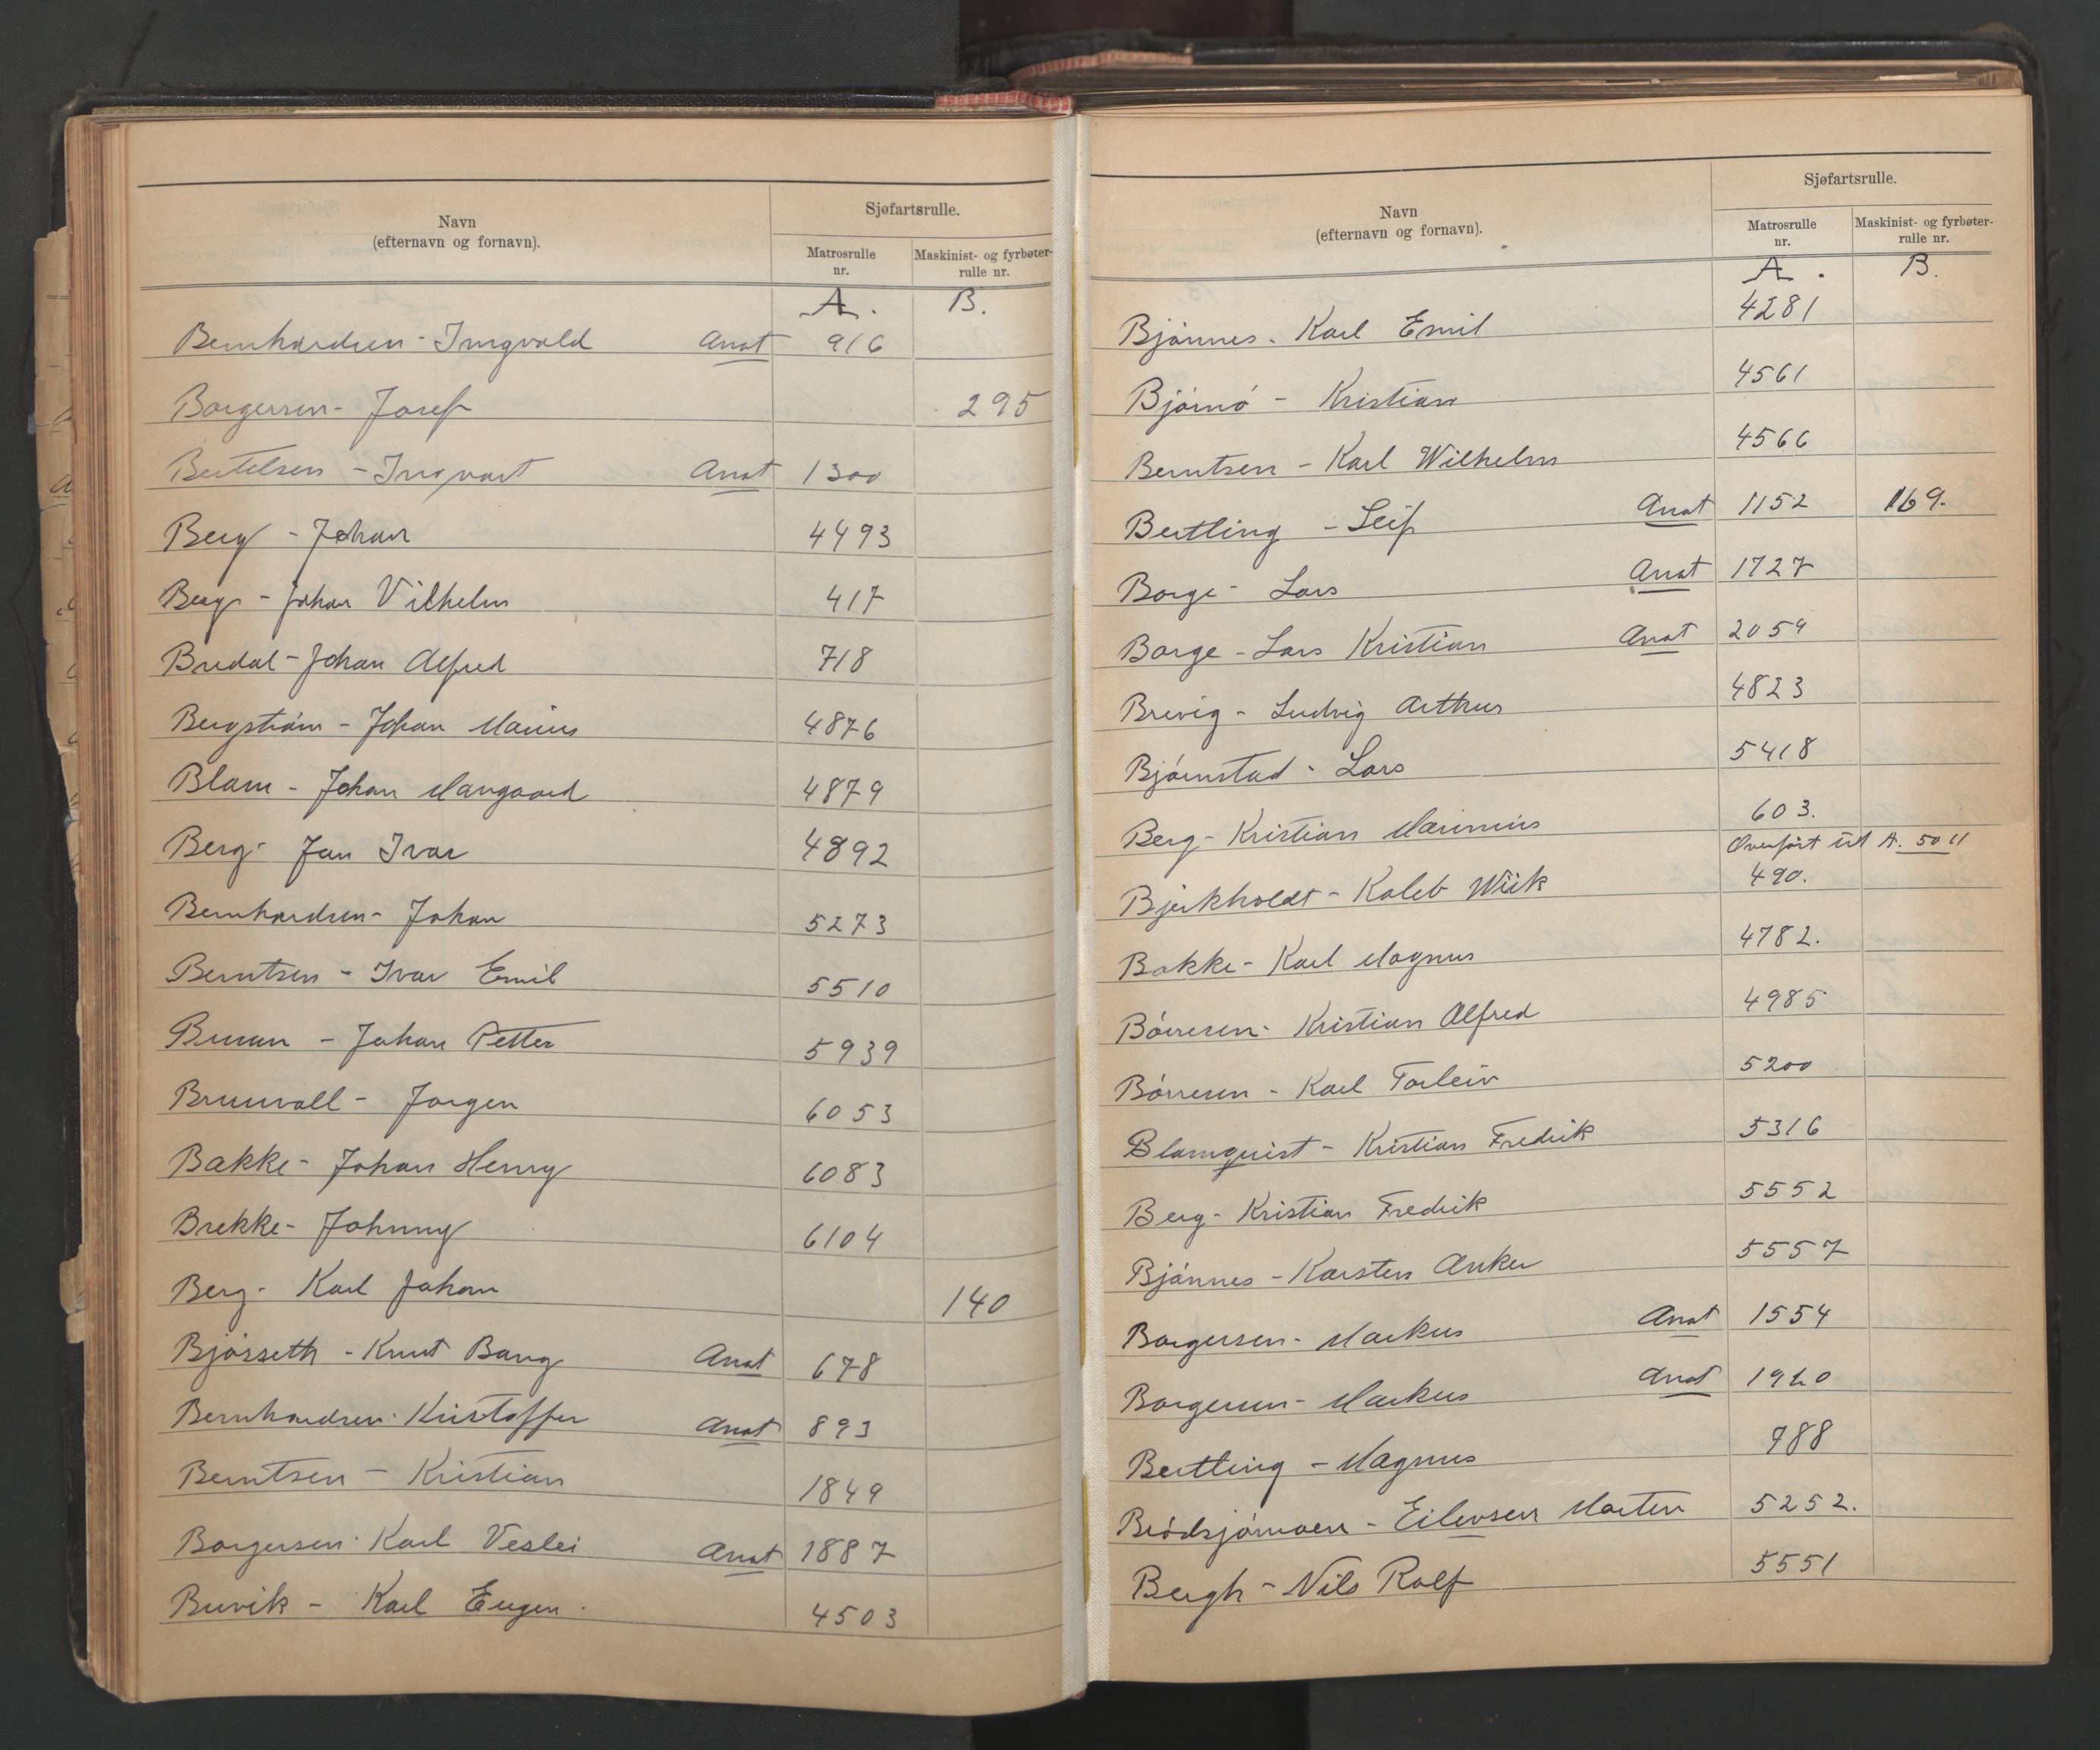 Navn
(efternavn og fornavn).
Sjøfartsrulle.
Matrosrulle nr.
Maskinist- og fyrbøter-rulle nr.
A. B.
Bernhardsen - Ingvald Anat 916
Borgersen - Josef 295
Bertelsen - Ingvart Anat 1300
Berg - Johan 4493
Berg - Johan Vilhelm 417
Bredal - Johan Alfred 718
Bergstrøm - Johan Marius 4876
Blom - Johan Mangaard 4879
Berg - Jan Ivar 4892
Bernhardsen - Johan 5273
Berntsen - Ivar Emil 5510
- Johan Petter 5939
Brunvall - Jørgen 6053
Bakke - Johan Henry 6083
Brekke - Johnny 6104
Berg - Karl Johan 140
Bjørseth - Knut Bang Anat 678
Bernhardsen - Kristoffer Anat 893
Berntsen - Kristian 1849
Borgersen - Karl Veslei Anat 1887
Buvik - Karl Eugen. 4503
Navn
(efternavn og fornavn).
Sjøfartsrulle.
Matrosrulle nr.
Maskinist- og fyrbøter-rulle nr.
A. B.
Bjønnes - Karl Emil 4281
Bjørnø - Kristian 4561
Berntsen - Karl Wilhelm 4566
Bertling - Leif Anat 1152 169.
Borge - Lars Anat 1727
Borge - Lars Kristian Anat 2059
Brevig - Ludvig Arthur 4823
Bjørnstad - Lars 5418
Berg - Kristian Marinius 603.
Overført til A. 5011
Bjerkholdt - Kaleb Wiik 490.
Bakke - Karl Magnus 4782.
Børresen - Kristian Alfred 4985
Børresen - Karl Torleiv 5200
Blomquist - Kristian Fredrik 5316
Berg - Kristian Fredrik 5552
Bjønnes - Karsten Anker 5557
Borgersen - Markus Anat 1554
Borgersen - Markus Anat 1920
Bertling - Magnus 788
Brødsjømoen - Eilevsen Morten 5252.
Bergh - Nils Rolf 5551